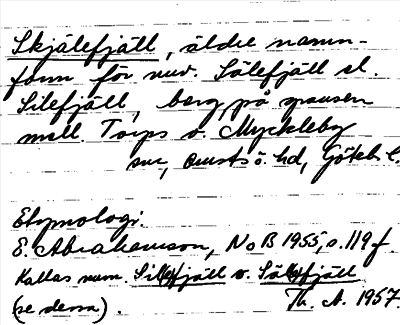 Skjälefjäll, äldre namn-
form för nuv. Sälefjäll el.
Silefjäll, berg på gränsen
mell. Torps o. Myckleby
snr, Orusts ö. hd, Göteb l.
Etymologi.
E. Abrahamson, NoB 1955, s. 119 f
Kallas num. Sil(e)fjäll o. Säl(e)fjäll
(se dessa). Th. A. 1957.